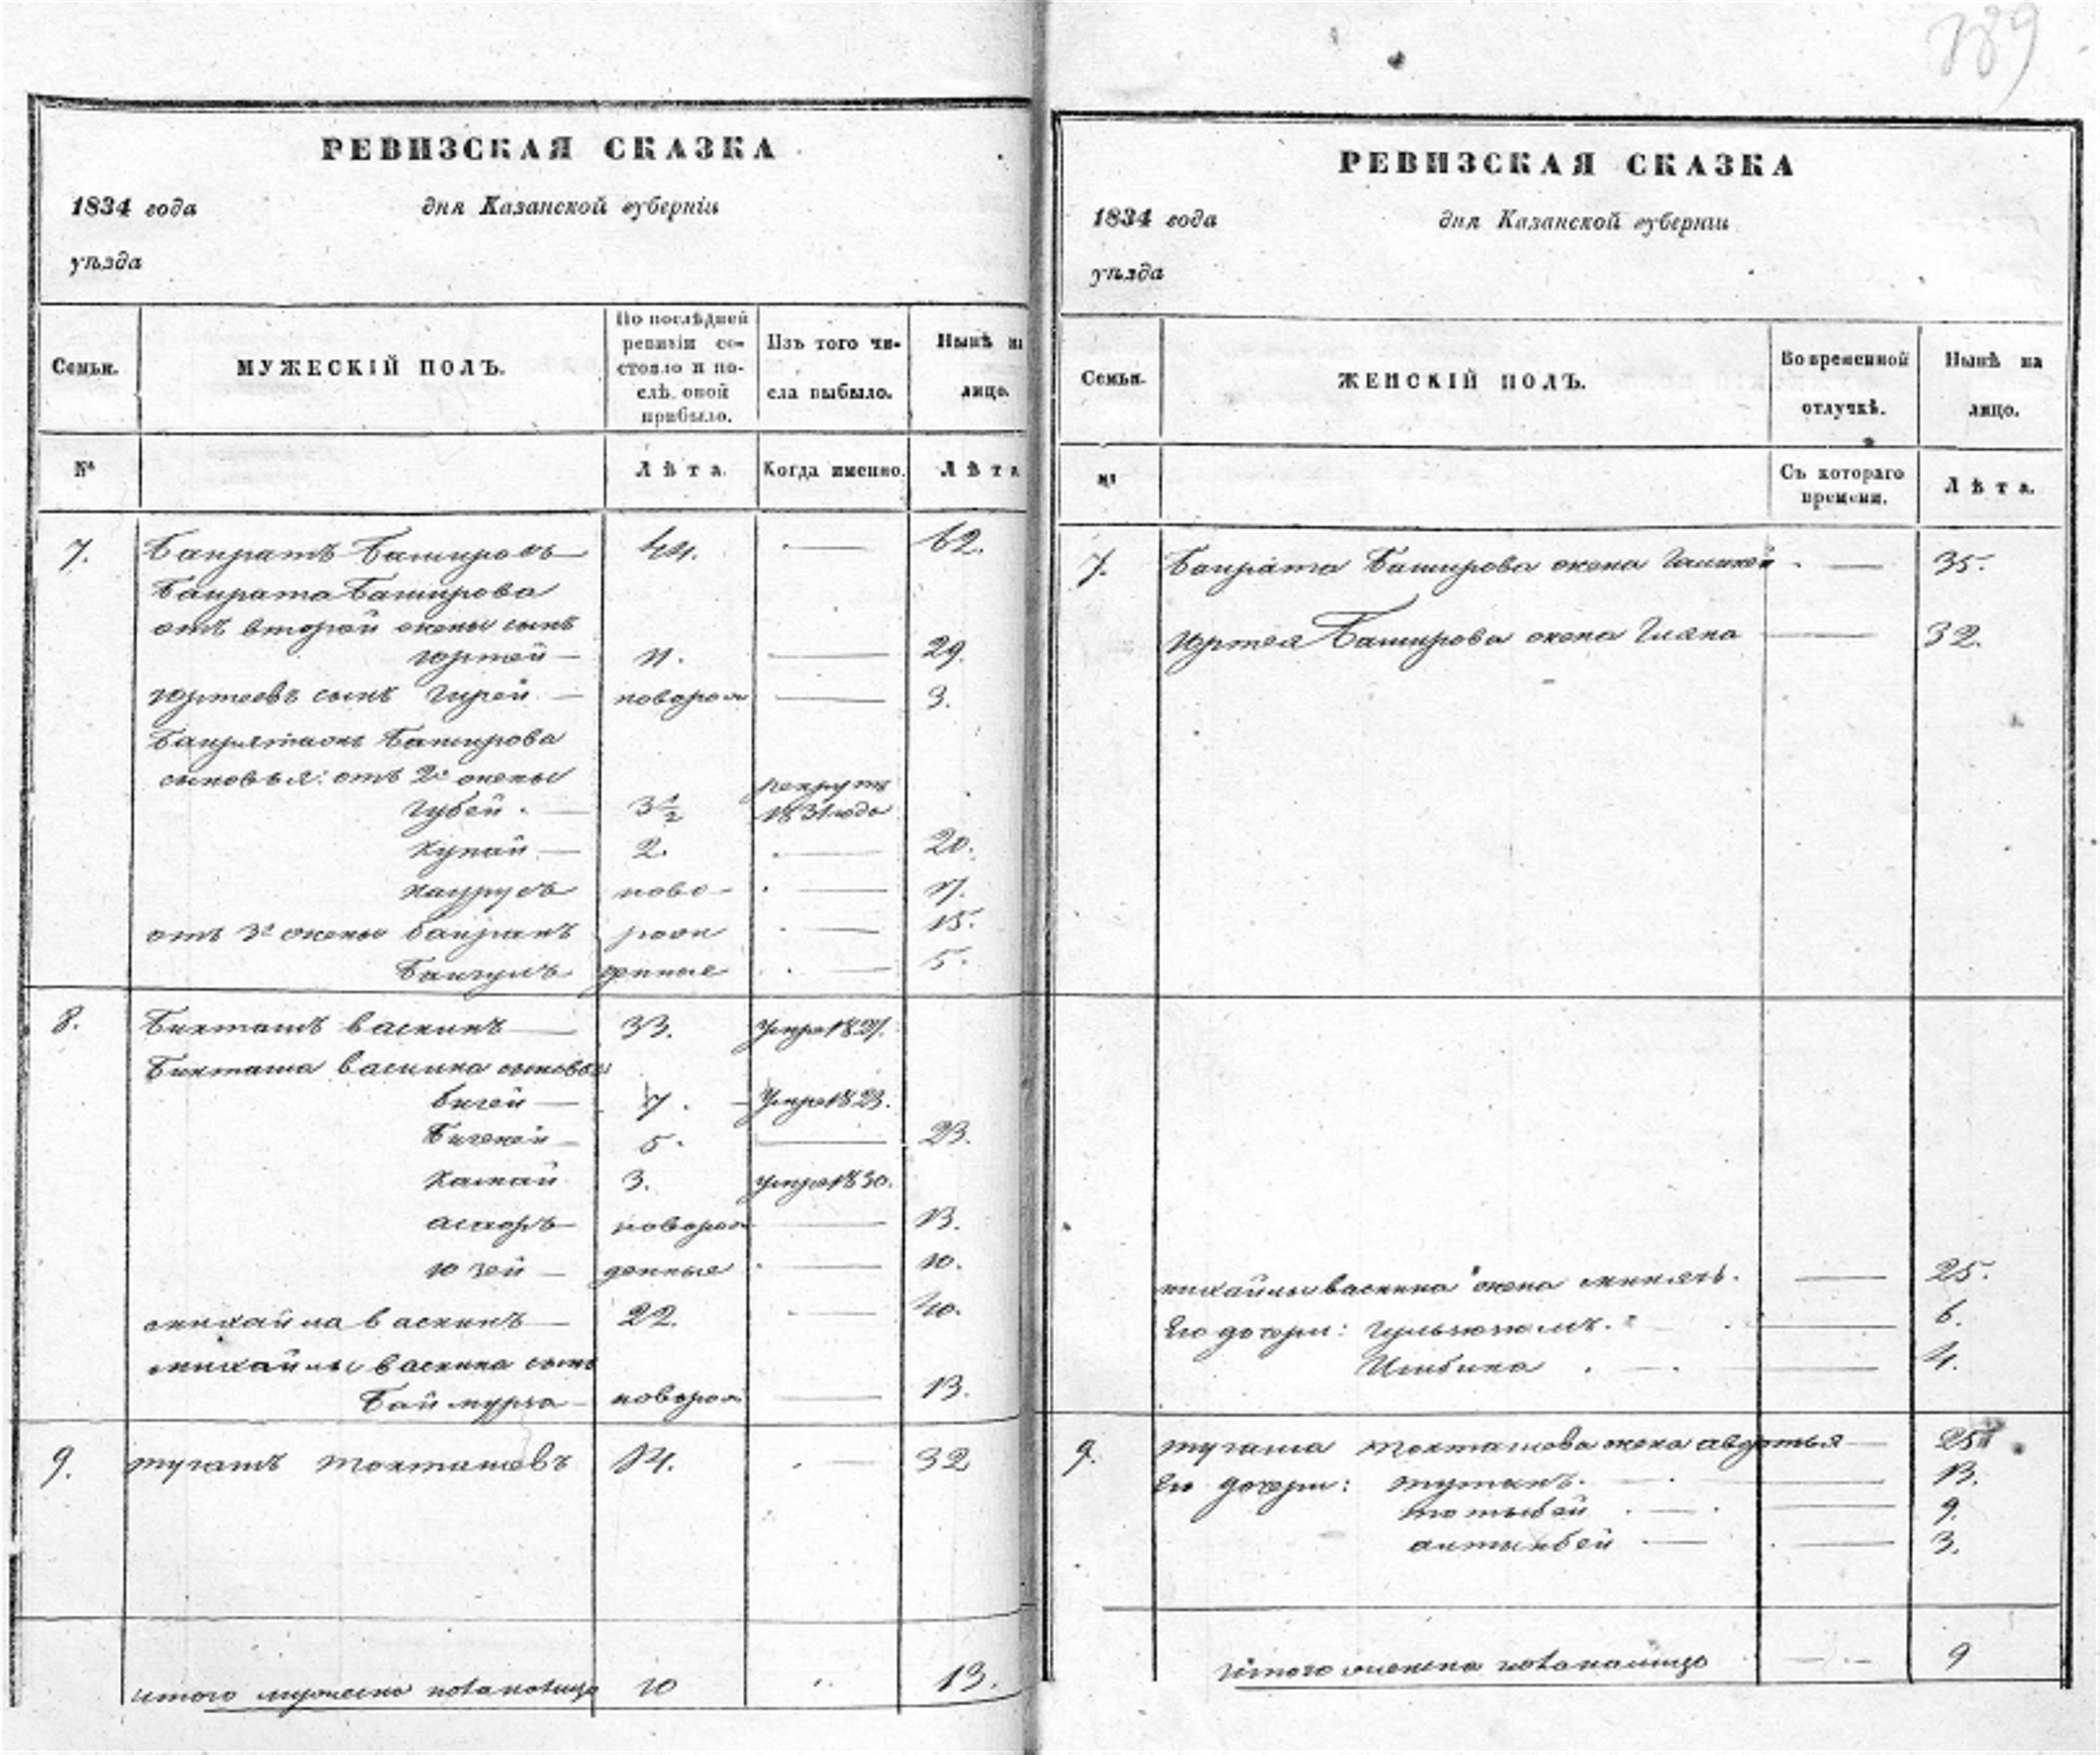 789
РЕВИЗСКАЯ СКАЗКА
1834 года дня Казанской губерніи
уѣзда
Семьи. МУЖЕСКІЙ ПОЛЪ. По послѣдней ревизіи состояло и послѣ оной прибыло. Изъ того числа выбыло. Нынѣ на лицо.
№ Лѣта. Когда именно. Лѣта
7. Баиратъ Башировъ 44. — 62.
Баирата Баширова
отъ второй жены сынъ
Юртей — 11. — 29.
Юртеевъ сынъ Гирей — новорож — 3.
Баширова
сыновья: отъ 2й жены
Губей. — 3½ рекрутъ 1831 года
Кунай — 2. — 20.
ново- — 17.
отъ 3й жены Баирамъ рож — 15.
Баигулъ денные — 5.
8. Бикташъ Васкинъ — 33. умре 1827.
Бикташа Васкина сыновья
Бигей — 7. умре 1823.
5. — 23.
Камай 3. умре 1830.
новорож — 13.
Юзей — денные — 10.
Михайла Васкинъ — 22. — 40.
Михайлы Васкина сынъ
Баймурза — новорож — 13.
9. Тугашъ Токташевъ 14. — 32
Итого мужеска пола налицо 10 13.
РЕВИЗСКАЯ СКАЗКА
1834 года дня Казанской губерніи
уѣзда
Семьи. ЖЕНСКІЙ ПОЛЪ. Во временной отлучкѣ. Нынѣ на лицо.
№ Съ котораго времени. Лѣта.
7. Баирата Баширова жена — 35.
Юртея Баширова жена — 32.
Михайлы Васкина жена — 25.
Его дочери: — 6.
— 4.
9. Тугаша Токташова жена Авдотья — 25
Его дочери: — 13.
— 9.
Алтынбей — 3.
Итого женска пола налицо — 9